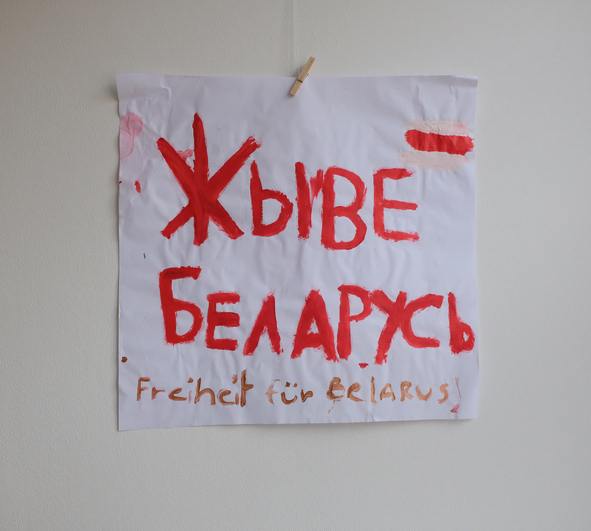 ЖЫВЕ
БЕЛАРУСЬ
Freiheit für BELARUS!